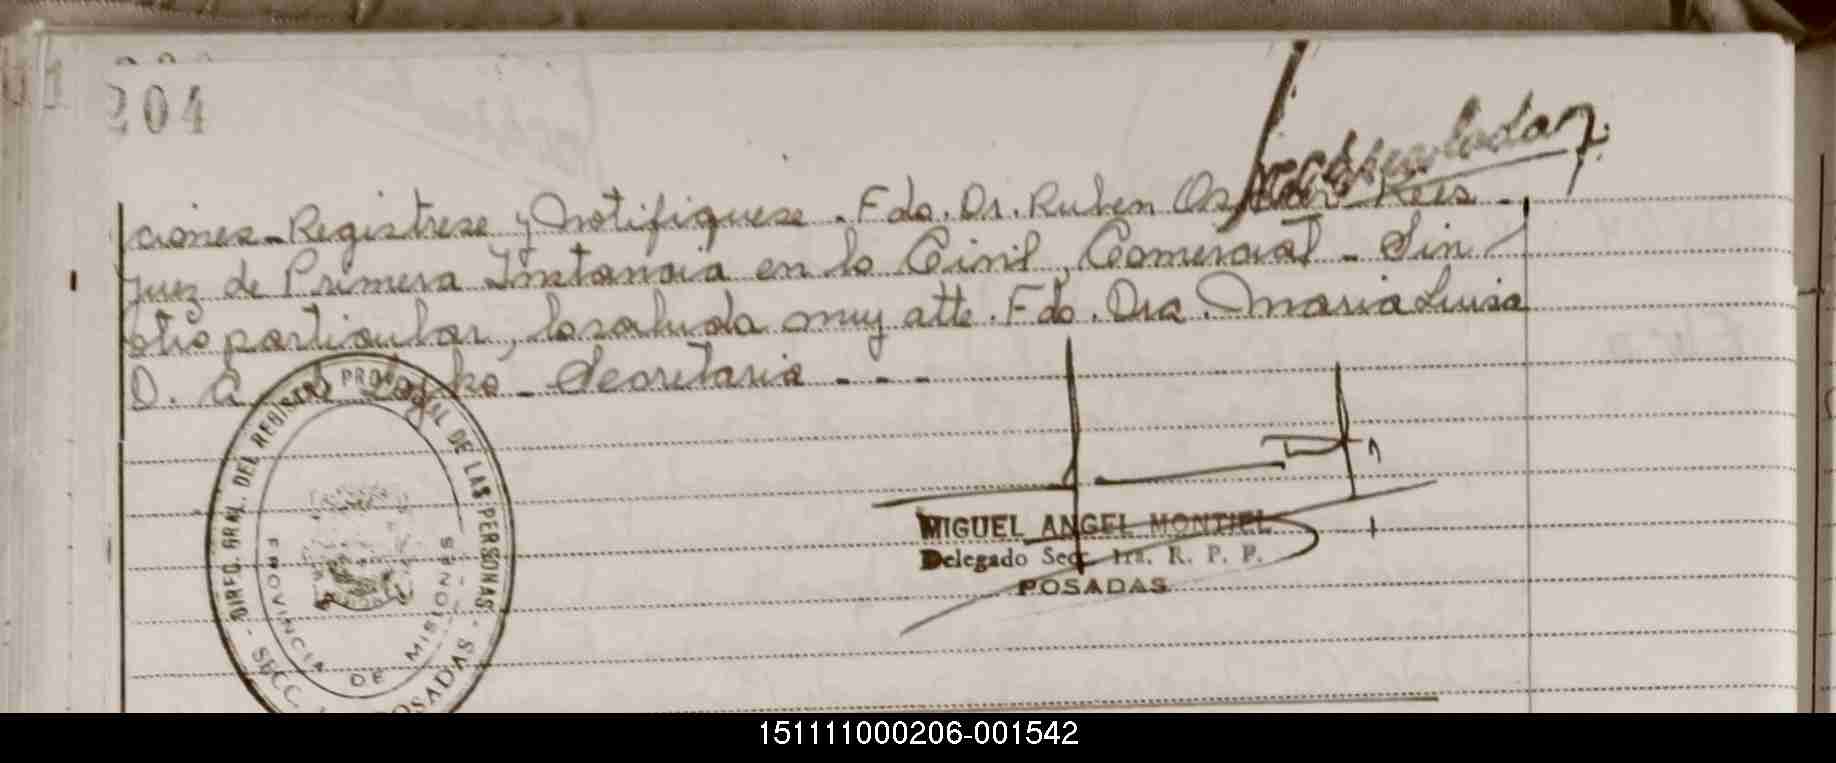 204
ciones - Registrese y Notifiquese. Fdo. Dr. Ruben Osvaldo Rees -
Juez de Primera Instancia en lo Civil, Comercial - Sin
otro particular, lo saluda muy atte. Fdo. Dra. Maria Luisa
D. - Secretaria - - -
DIREC. GRAL. DEL REGISTRO PROVINCIAL DE LAS PERSONAS
SECC. POSADAS
PROVINCIA DE MISIONES
MIGUEL ANGEL MONTIEL
Delegado Secc. 1ra. R. P. P.
POSADAS
151111000206-001542